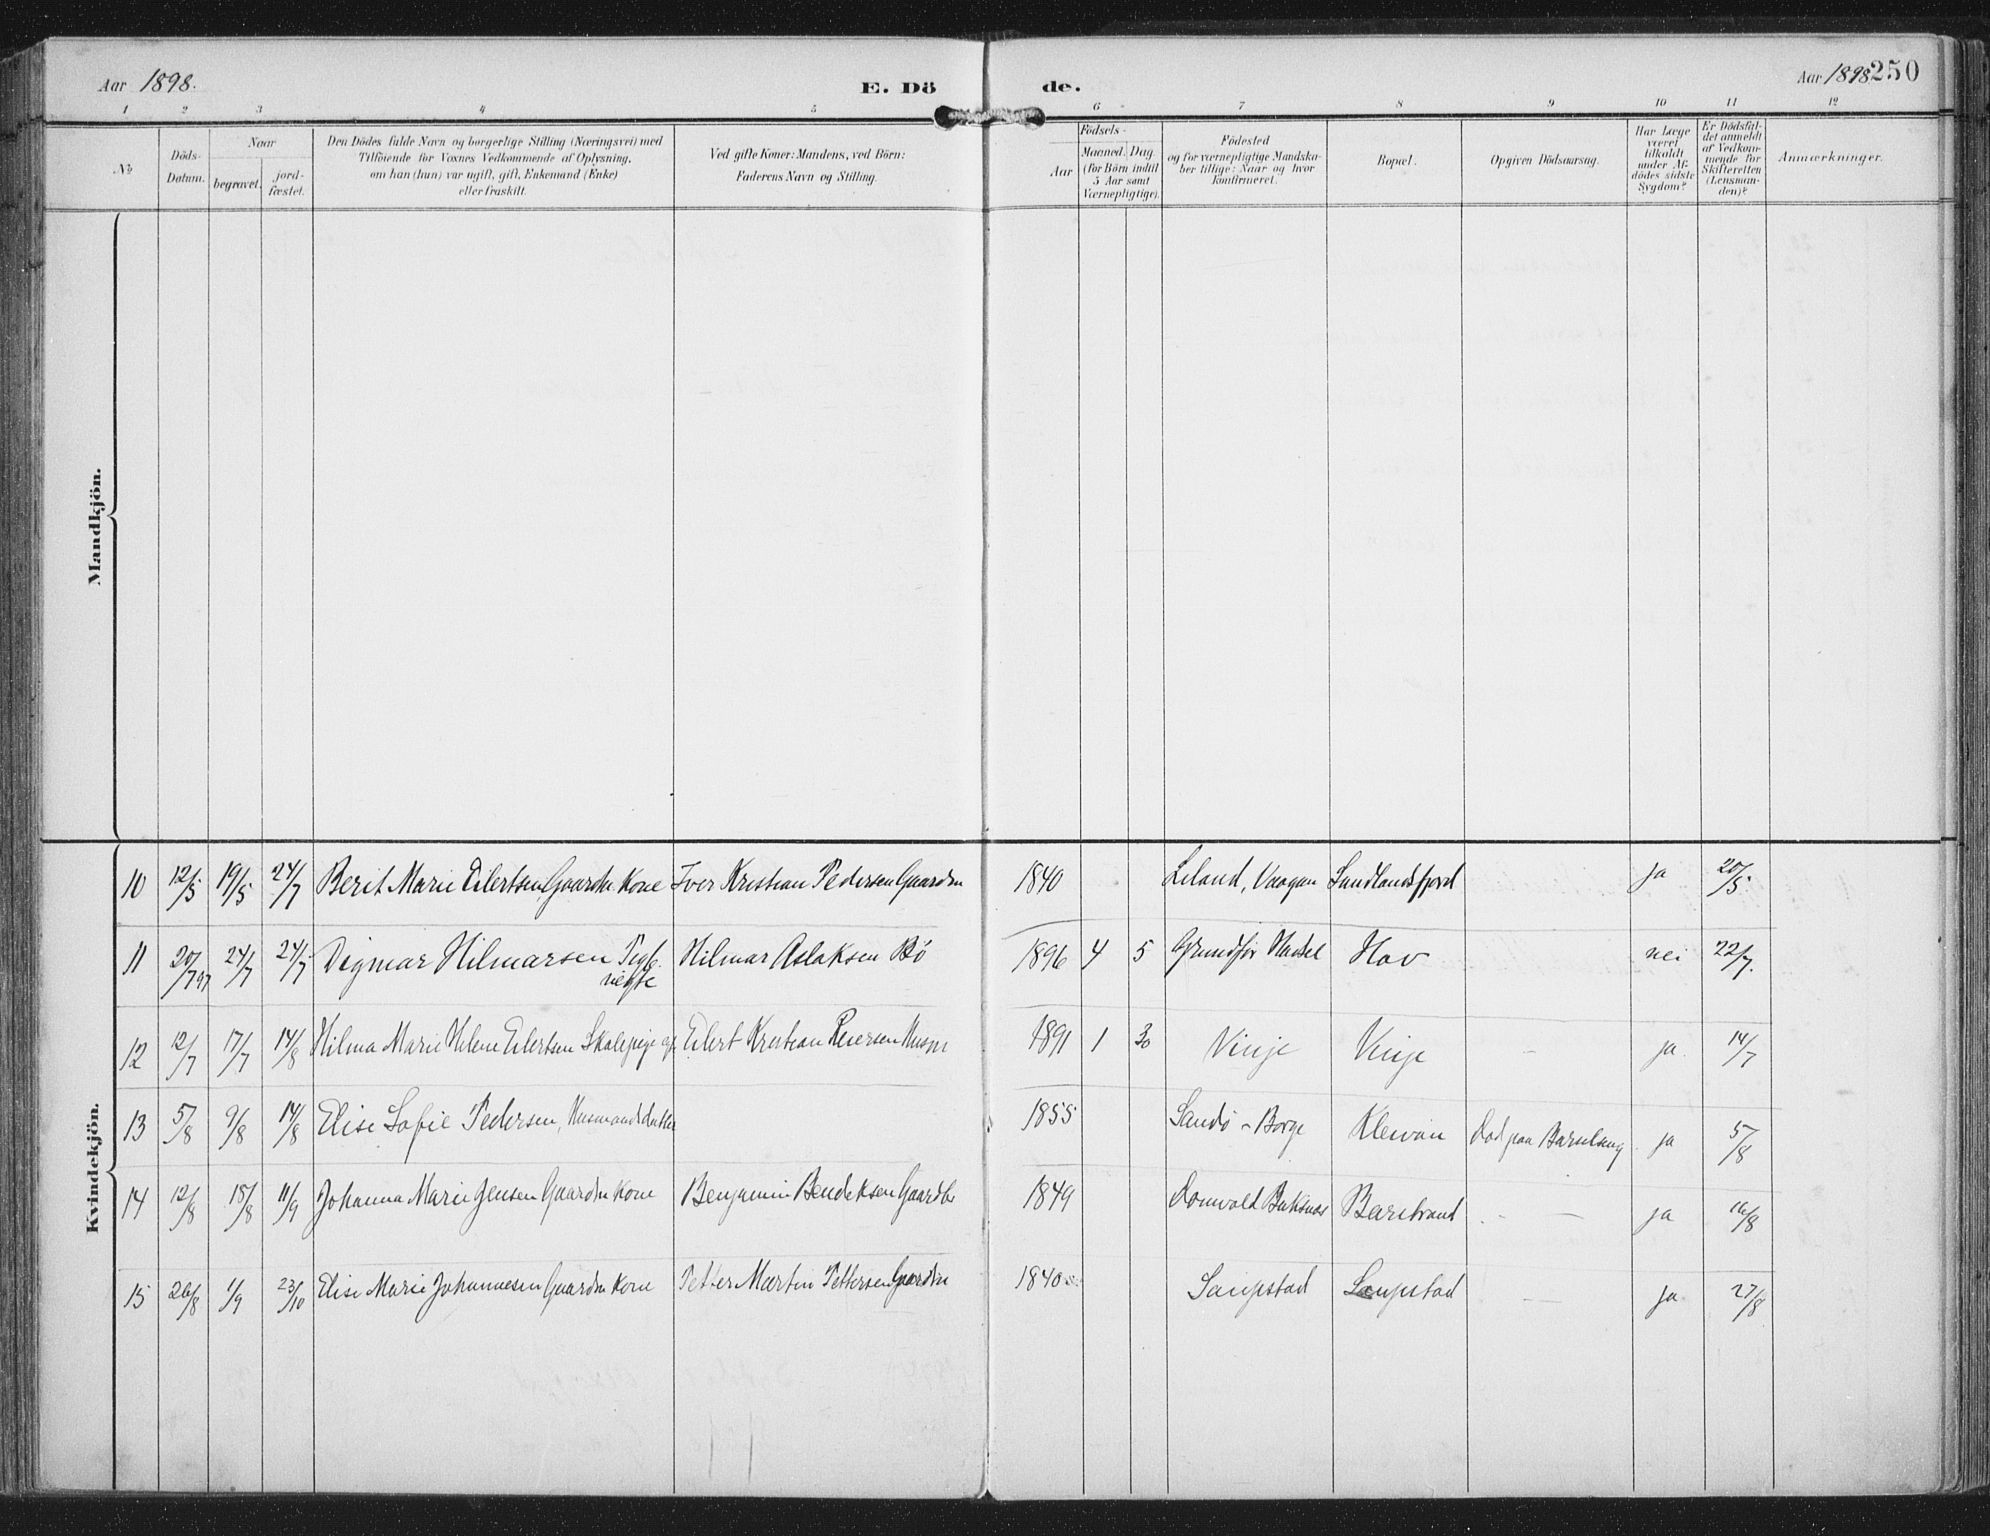 Aar 1898. E. Dö de. Aar 1898 250
1 2 3 4 5 6 7 8 9 10 11 12
No
Döds-
Datum.
Naar
begravet.
jord-
fæstet.
Den Dödes fulde Navn og borgerlige Stilling (Næringsvei) med
Tilföiende for Voxnes Vedkommende af Oplysning,
om han (hun) var ugift, gift, Enkemand (Enke)
eller fraskilt.
Ved gifte Koner: Mandens, ved Börn:
Faderens Navn og Stilling.
Födsels-
Aar
Maaned. Dag.
(for Börn indtil
5 Aar samt
Værnepligtige).
Födested
og for værnepligtige Mandska-
ber tillige: Naar og hvor
konfirmeret.
Bopæl.
Opgiven Dödsaarsag.
Har Læge
været
tilkaldt
under Af-
dödes sidste
Sygdom?
Er Dödsfal-
det anmeldt
af Vedkom-
mende for
Skifteretten
(Lensman-
den)?
Anmærkninger.
Mandkjön.
Kvindekjön.
10 12/5 19/5 24/7 Berit Marie Eilertsen, Gaardm Kone Iver Kristian Pedersen Gaardm 1840 Leland, Vaagan Sundlandsfjord ja 20/5.
11 20/7 97 24/7 24/7 Digmar Hilmarsen Hilmar Aslaksen Bö 1896 4 5 Grundför Hadsel Hov nei 22/7.
12 12/7 17/7 14/8 Hilma Marie Helene Eilertsen Skolepige Eilert Kristian Reiersen Husm 1891 1 30 Vinje Vinje - ja. 14/7
13 5/8 9/8 14/8 Elise Sofie Pedersen, Husmandsdatter 1855 Sandö - Borge Klevan Död paa Barselseng ja 5/8
14 12/8 18/8 11/9 Johanna Marie Jensen Gaardm Kone Benjamin Bendiksen Gaardbr 1849 Buksnæs Barstrand - - ja 16/8
15 26/8 1/9 23/10 Elise Marie Johannesen Gaardm Kone Petter Martin Pettersen Gaardm 1840 Saupstad Saupstad - ja 27/8